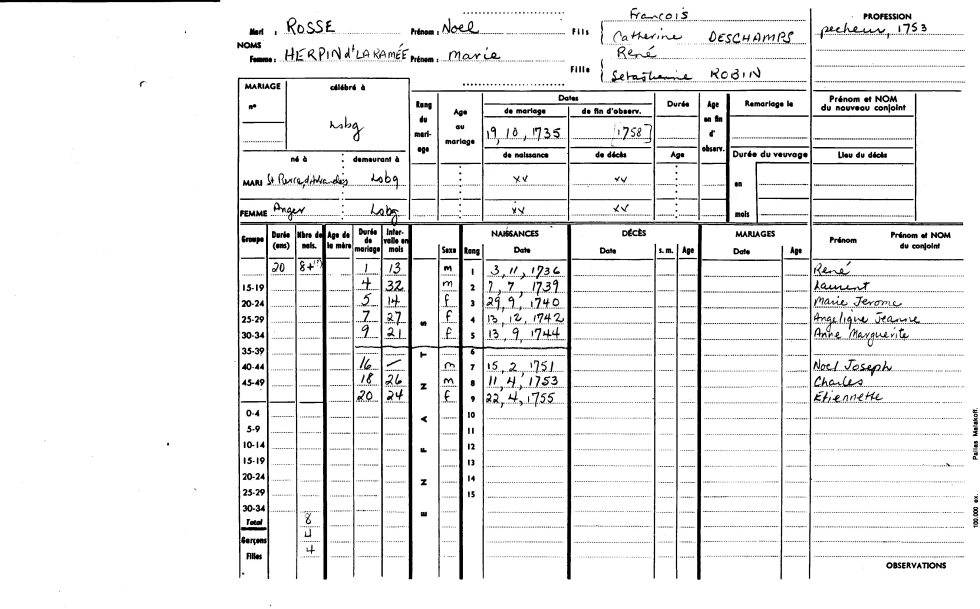 Mari : ROSSE Prénom : Noel Fils { François
Catherine DESCHAMPS
PROFESSION
pecheur, 1753
NOMS
Femme : HERPIN d'LARAMÉE Prénom : Marie Fille { René
Sebastienne ROBIN
MARIAGE célébré à
n°
Lsbg
Rang du mari-age
Age au mariage
Dates
de mariage de fin d'observ.
19, 10, 1735 [1758]
de naissance de décès
Durée
Age
Age en fin d' observ.
Remariage le
Durée du veuvage
en
mois
Prénom et NOM du nouveau conjoint
Lieu du décès
né à demeurant à
MARI St Pierre, Lsbg xx xx
FEMME Anger Lsbg xx xx
Groupe Durée (ans) Nbre de nais. Age de la mère Durée de mariage Inter-valle en mois Sexe Rang NAISSANCES Date DÉCÈS Date s. m. Age MARIAGES Date Age Prénom Prénom et NOM du conjoint
ENFANTS
20 8+(?) 1 13 m 1 3, 11, 1736 René
15-19 4 32 m 2 7, 7, 1739 Laurent
20-24 5 14 f 3 29, 9, 1740 Marie Jerome
25-29 7 27 f 4 13, 12, 1742 Angelique Jeanne
30-34 9 21 f 5 13, 9, 1744 Anne Marguerite
35-39 6
40-44 16 — m 7 15, 2, 1751 Noel Joseph
45-49 18 26 m 8 11, 4, 1753 Charles
20 24 f 9 22, 4, 1755 Etiennette
0-4 10
5-9 11
10-14 12
15-19 13
20-24 14
25-29 15
30-34
Total 8
Garçons 4
Filles 4
OBSERVATIONS
100.000 ex. Pallas Malakoff.